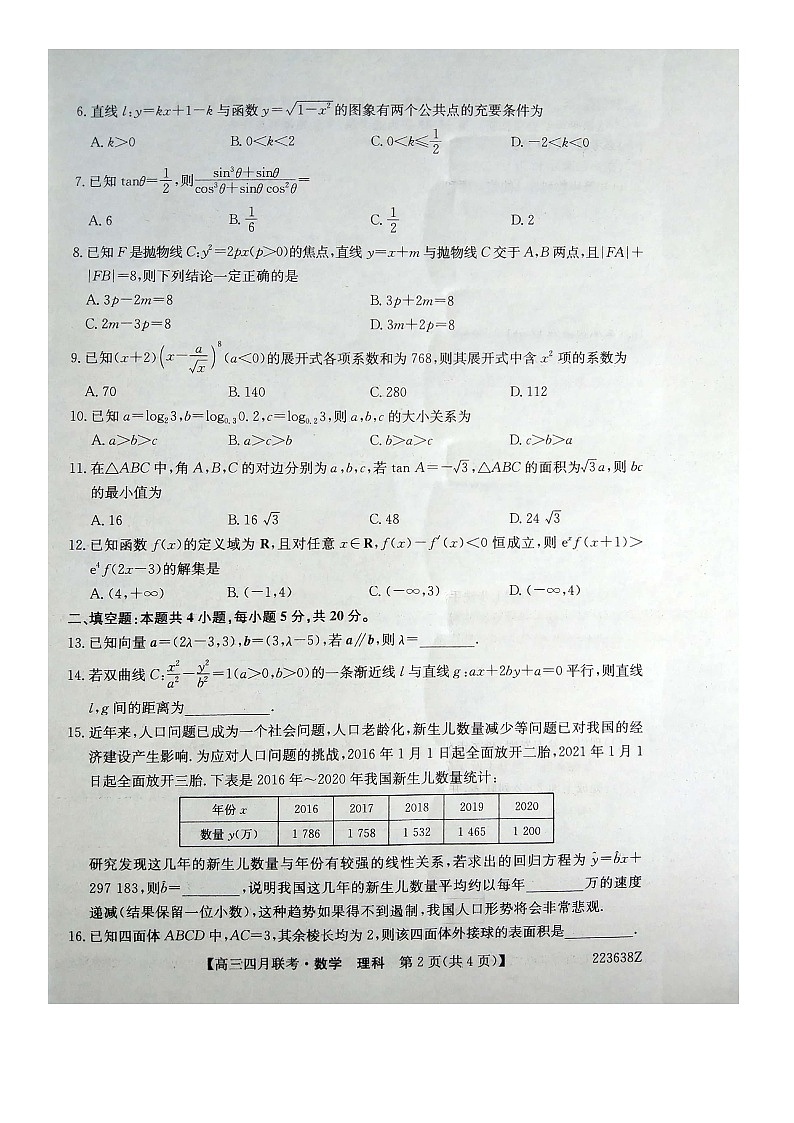 6. 直线 l:y=kx+1-k 与函数 y=√(1-x²) 的图象有两个公共点的充要条件为
A. k>0 B. 0<k<2 C. 0<k≤1/2 D. -2<k<0
7. 已知 tanθ=1/2,则(sin³θ+sinθ)/(cos³θ+sinθ cos²θ)=
A. 6 B. 1/6 C. 1/2 D. 2
8. 已知 F 是抛物线 C:y²=2px(p>0)的焦点,直线 y=x+m 与抛物线 C 交于 A,B 两点,且|FA|+
|FB|=8,则下列结论一定正确的是
A. 3p-2m=8 B. 3p+2m=8
C. 2m-3p=8 D. 3m+2p=8
9. 已知(x+2)(x-a/√x)⁸(a<0)的展开式各项系数和为 768,则其展开式中含 x² 项的系数为
A. 70 B. 140 C. 280 D. 112
10. 已知 a=log₂3,b=log₀.₃0.2,c=log₀.₂3,则 a,b,c 的大小关系为
A. a>b>c B. a>c>b C. b>a>c D. c>b>a
11. 在△ABC 中,角 A,B,C 的对边分别为 a,b,c,若 tan A=-√3,△ABC 的面积为√3a,则 bc
的最小值为
A. 16 B. 16√3 C. 48 D. 24√3
12. 已知函数 f(x)的定义域为 R,且对任意 x∈R,f(x)-f′(x)<0 恒成立,则 eˣf(x+1)>
e⁴f(2x-3)的解集是
A. (4,+∞) B. (-1,4) C. (-∞,3) D. (-∞,4)
二、填空题:本题共 4 小题,每小题 5 分,共 20 分。
13. 已知向量 a=(2λ-3,3),b=(3,λ-5),若 a∥b,则 λ=________.
14. 若双曲线 C:x²/a²-y²/b²=1(a>0,b>0)的一条渐近线 l 与直线 g:ax+2by+a=0 平行,则直线
l,g 间的距离为____________.
15. 近年来,人口问题已成为一个社会问题,人口老龄化,新生儿数量减少等问题已对我国的经
济建设产生影响. 为应对人口问题的挑战,2016 年 1 月 1 日起全面放开二胎,2021 年 1 月 1
日起全面放开三胎. 下表是 2016 年～2020 年我国新生儿数量统计:
年份 x 2016 2017 2018 2019 2020
数量 y(万) 1 786 1 758 1 532 1 465 1 200
研究发现这几年的新生儿数量与年份有较强的线性关系,若求出的回归方程为 ŷ=b̂x+
297 183,则b̂=________,说明我国这几年的新生儿数量平均约以每年________万的速度
递减(结果保留一位小数),这种趋势如果得不到遏制,我国人口形势将会非常悲观.
16. 已知四面体 ABCD 中,AC=3,其余棱长均为 2,则该四面体外接球的表面积是__________.
【高三四月联考·数学 理科 第 2 页(共 4 页)】 223638Z